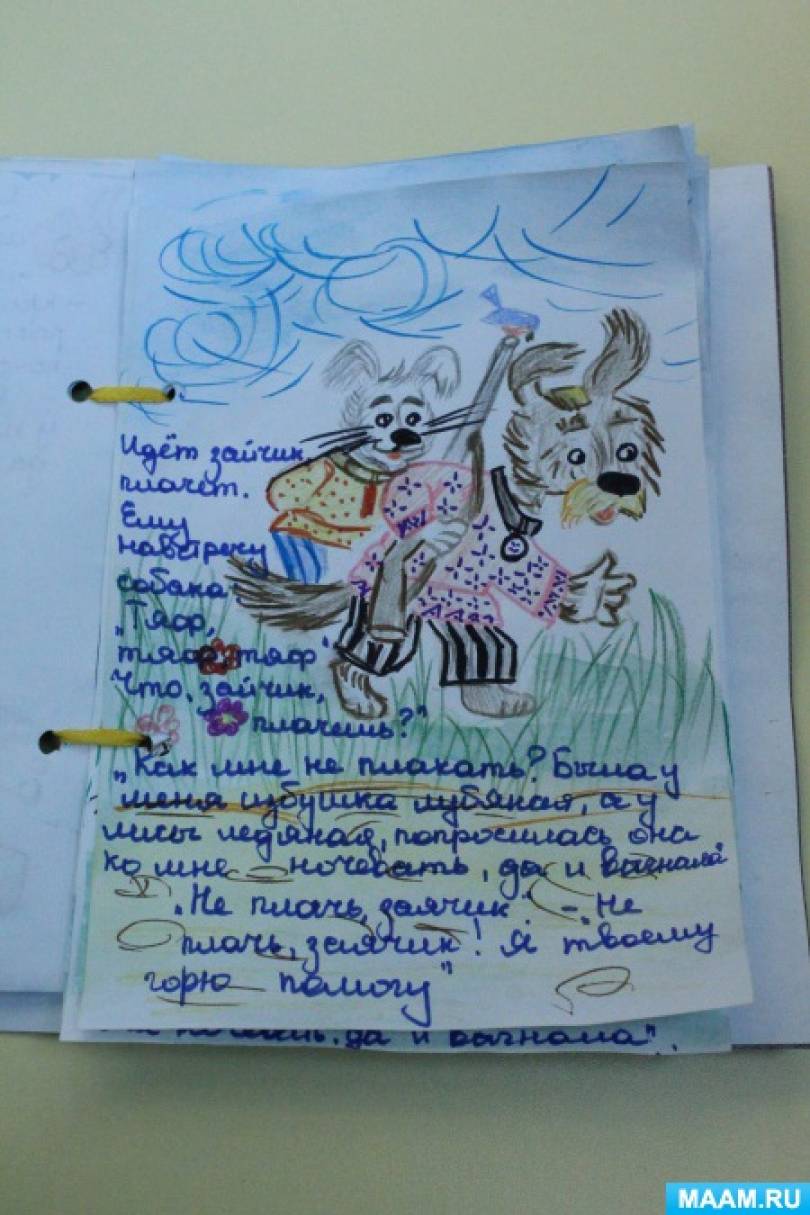 Идёт зайчик,
плачет.
Ему
навстречу
собака
„Тяф,
тяф, тяф"
Что, зайчик,
плачешь?"
„Как мне не плакать? Была у
меня избушка лубяная, а у
лисы ледяная, попросилась она
ко мне ночевать, да и выгнала"
„Не плачь, заячик" – „Не
плачь, заячик! Я твоему
горю помогу"
да и выгнала".
MAAM.RU